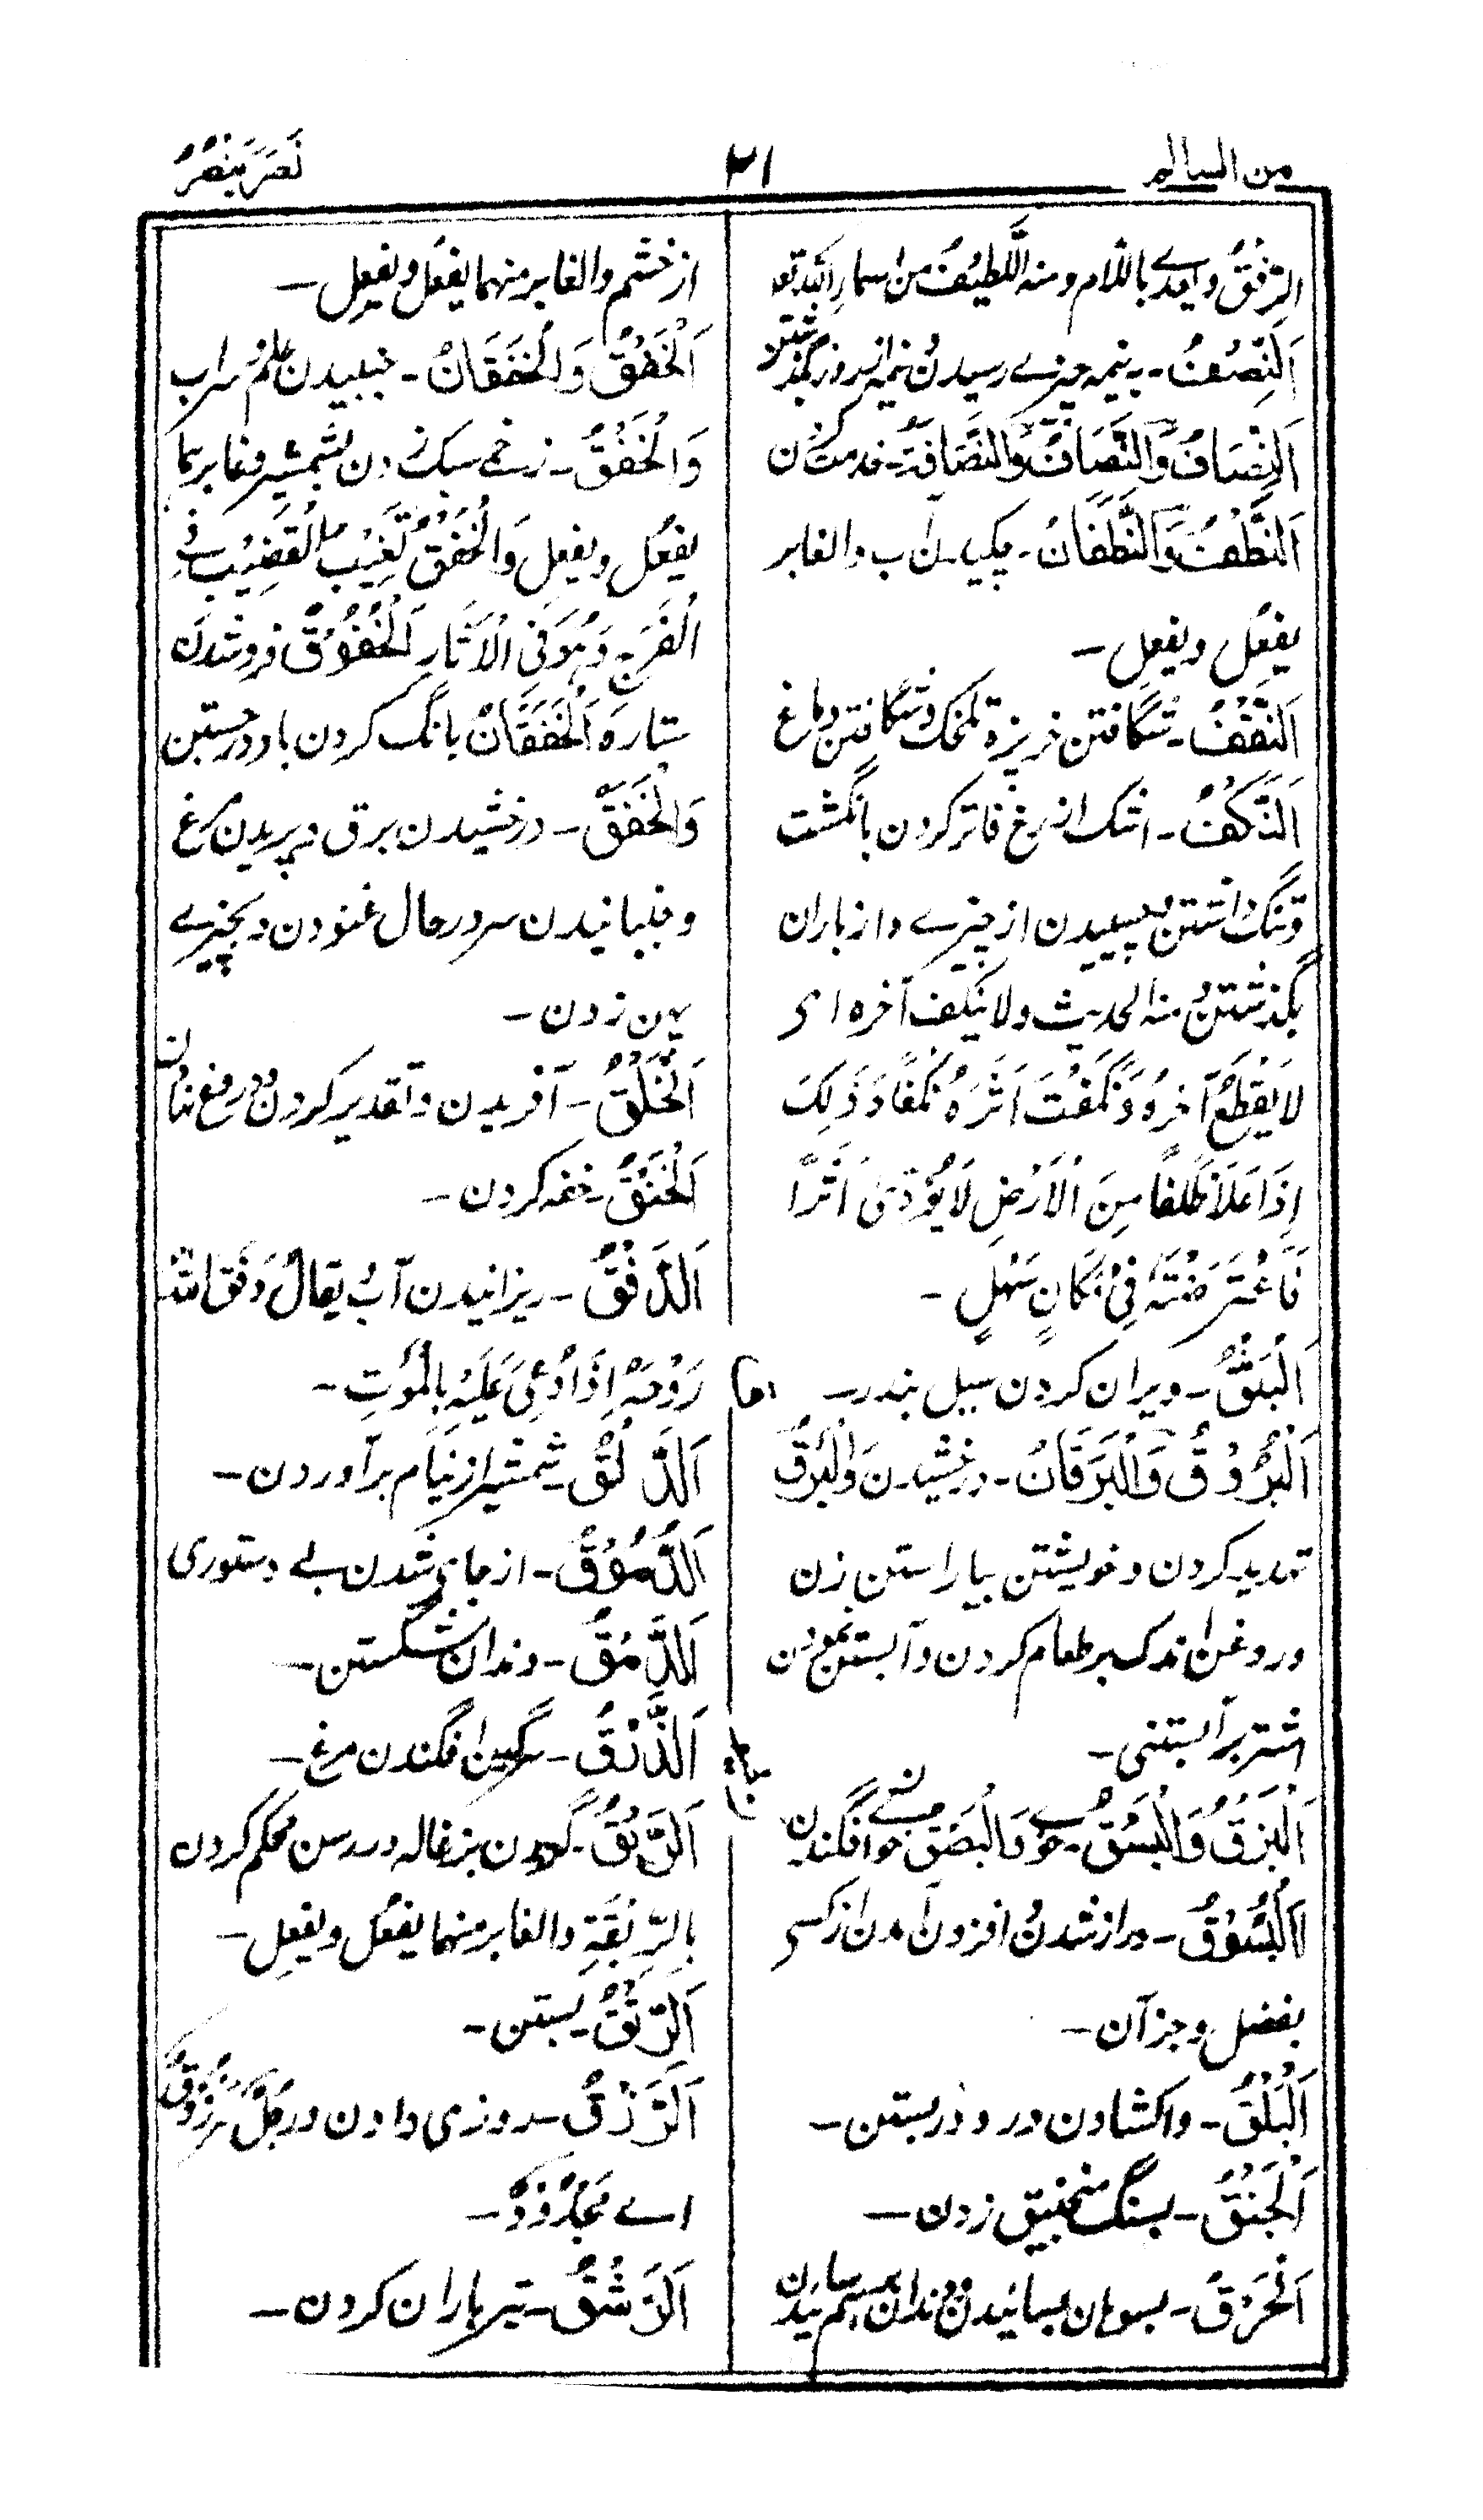 من السالم
٣١
نَصَرَ يَنْصُرُ
الرِّفْقُ ويعدى باللام ومنه اللَّطِيْفُ من اسماء الله تعو
اَلنِّصْفُ - به نيمه چيزے رسيدن و نيمه از روز بگذشتن
اَلنِّصَافُ وَالنَّصَافُ وَالنَّصَافَةُ - خدمت كردن
اَلنَّطْفُ وَالنَّطَفَانُ - چكيدن آب والغابر
يفعُل ويفعِل -
اَلنَّقْفُ - شگافتن خربزهٔ تلخك و شگافتن دماغ
اَلنَّكْفُ - اشك از رخ فاتر كردن بانگشت
وننگ داشتن و بيسيدن از چيزے و از باران
بگذشتن و منه الحديث ولا ينكف آخره اى
لَا يَقْطَعُ آخِرُهُ وَنَكَفْتُ اَثَرَهُ نَكْفًا وَذٰلِكَ
اِذَا عَلَا ظَلَفًا مِنَ الْاَرْضِ لَا يُؤَدِّىْ اَثَرًا
فَاعْتَرَضْتَهُ فِىْ مَكَانٍ سَهْلٍ -
اَلْبَثْقُ - ويران كردن سيل بند را - قا
اَلْبُرُوْقُ وَالْبَرَقَانُ - درخشيدن وَالْبَرْقُ
تهديد كردن و خويشتن بياراستن زن
و روغن اندك بر طعام كردن و آبستن نمودن
اشتر بر آبستنى -
اَلْبَزْقُ وَالْبَسْقُ - خوے وَالْبَصْقُ خوا فگندن
اَلْبُسُوْقُ - دراز شدن و افزون آمدن از كسى
بفضل و جز آن -
اَلْبَلْقُ - واكشادن در و در بستن -
اَلْجَنْقُ - بسنگ منجنيق زدن -
اَلْحَرْقُ - بسوهان بسائيدن و دندان بهم سائيدن
از خشم والغابر منهما يفعُل ويفعِل -
اَلْخَفْقُ وَالْخَفَقَانُ - جنبيدن علم و سراب
وَالْخَفْقُ - زخمے سبك زدن بشمشير و غابرها
يفعُل ويفعِل وَالْخَفْقُ تَغِيْبُ الْقَضِيْبِ فِى
الْفَرْجِ وَهُوَ فِى الْآثَارِ اَلْخُفُوْقُ فروشدن
ستاره اَلْخَفَقَانُ بانگ كردن باد در جستن
وَالْخَفْقُ - درخشيدن برق و پريدن مرغ
و جنبانيدن سر در حال غنودن و بچيزے
پهن زدن -
اَلْخَلْقُ - آفريدن و تقدير كردن و دروغ بافتن
اَلْخَنْقُ - خفه كردن -
اَلدَّفْقُ - ريزانيدن آب و يقال دَفَقَ اللهُ
رَوْحَهُ اِذَا دُعِىَ عَلَيْهِ بِالْمَوْتِ -
اَلدَّلْقُ - شمشير از نيام بر آوردن -
اَلدُّمُوْقُ - از جاى شدن بے دستورى
اَلدَّمْقُ - دندان شكستن -
اَلذَّرْقُ - سرگين افگندن مرغ -
اَلرَّبْقُ - گردن بزغاله در رسن محكم كردن
بِالرِّبْقَةِ والغابر منهما يفعُل ويفعِل -
اَلرَّتْقُ - بستن -
اَلرَّزْقُ - روزى دادن و رجلٌ مَرْزُوْقٌ
اے مَجْدُوْدٌ -
اَلرَّشْقُ - تير باران كردن -